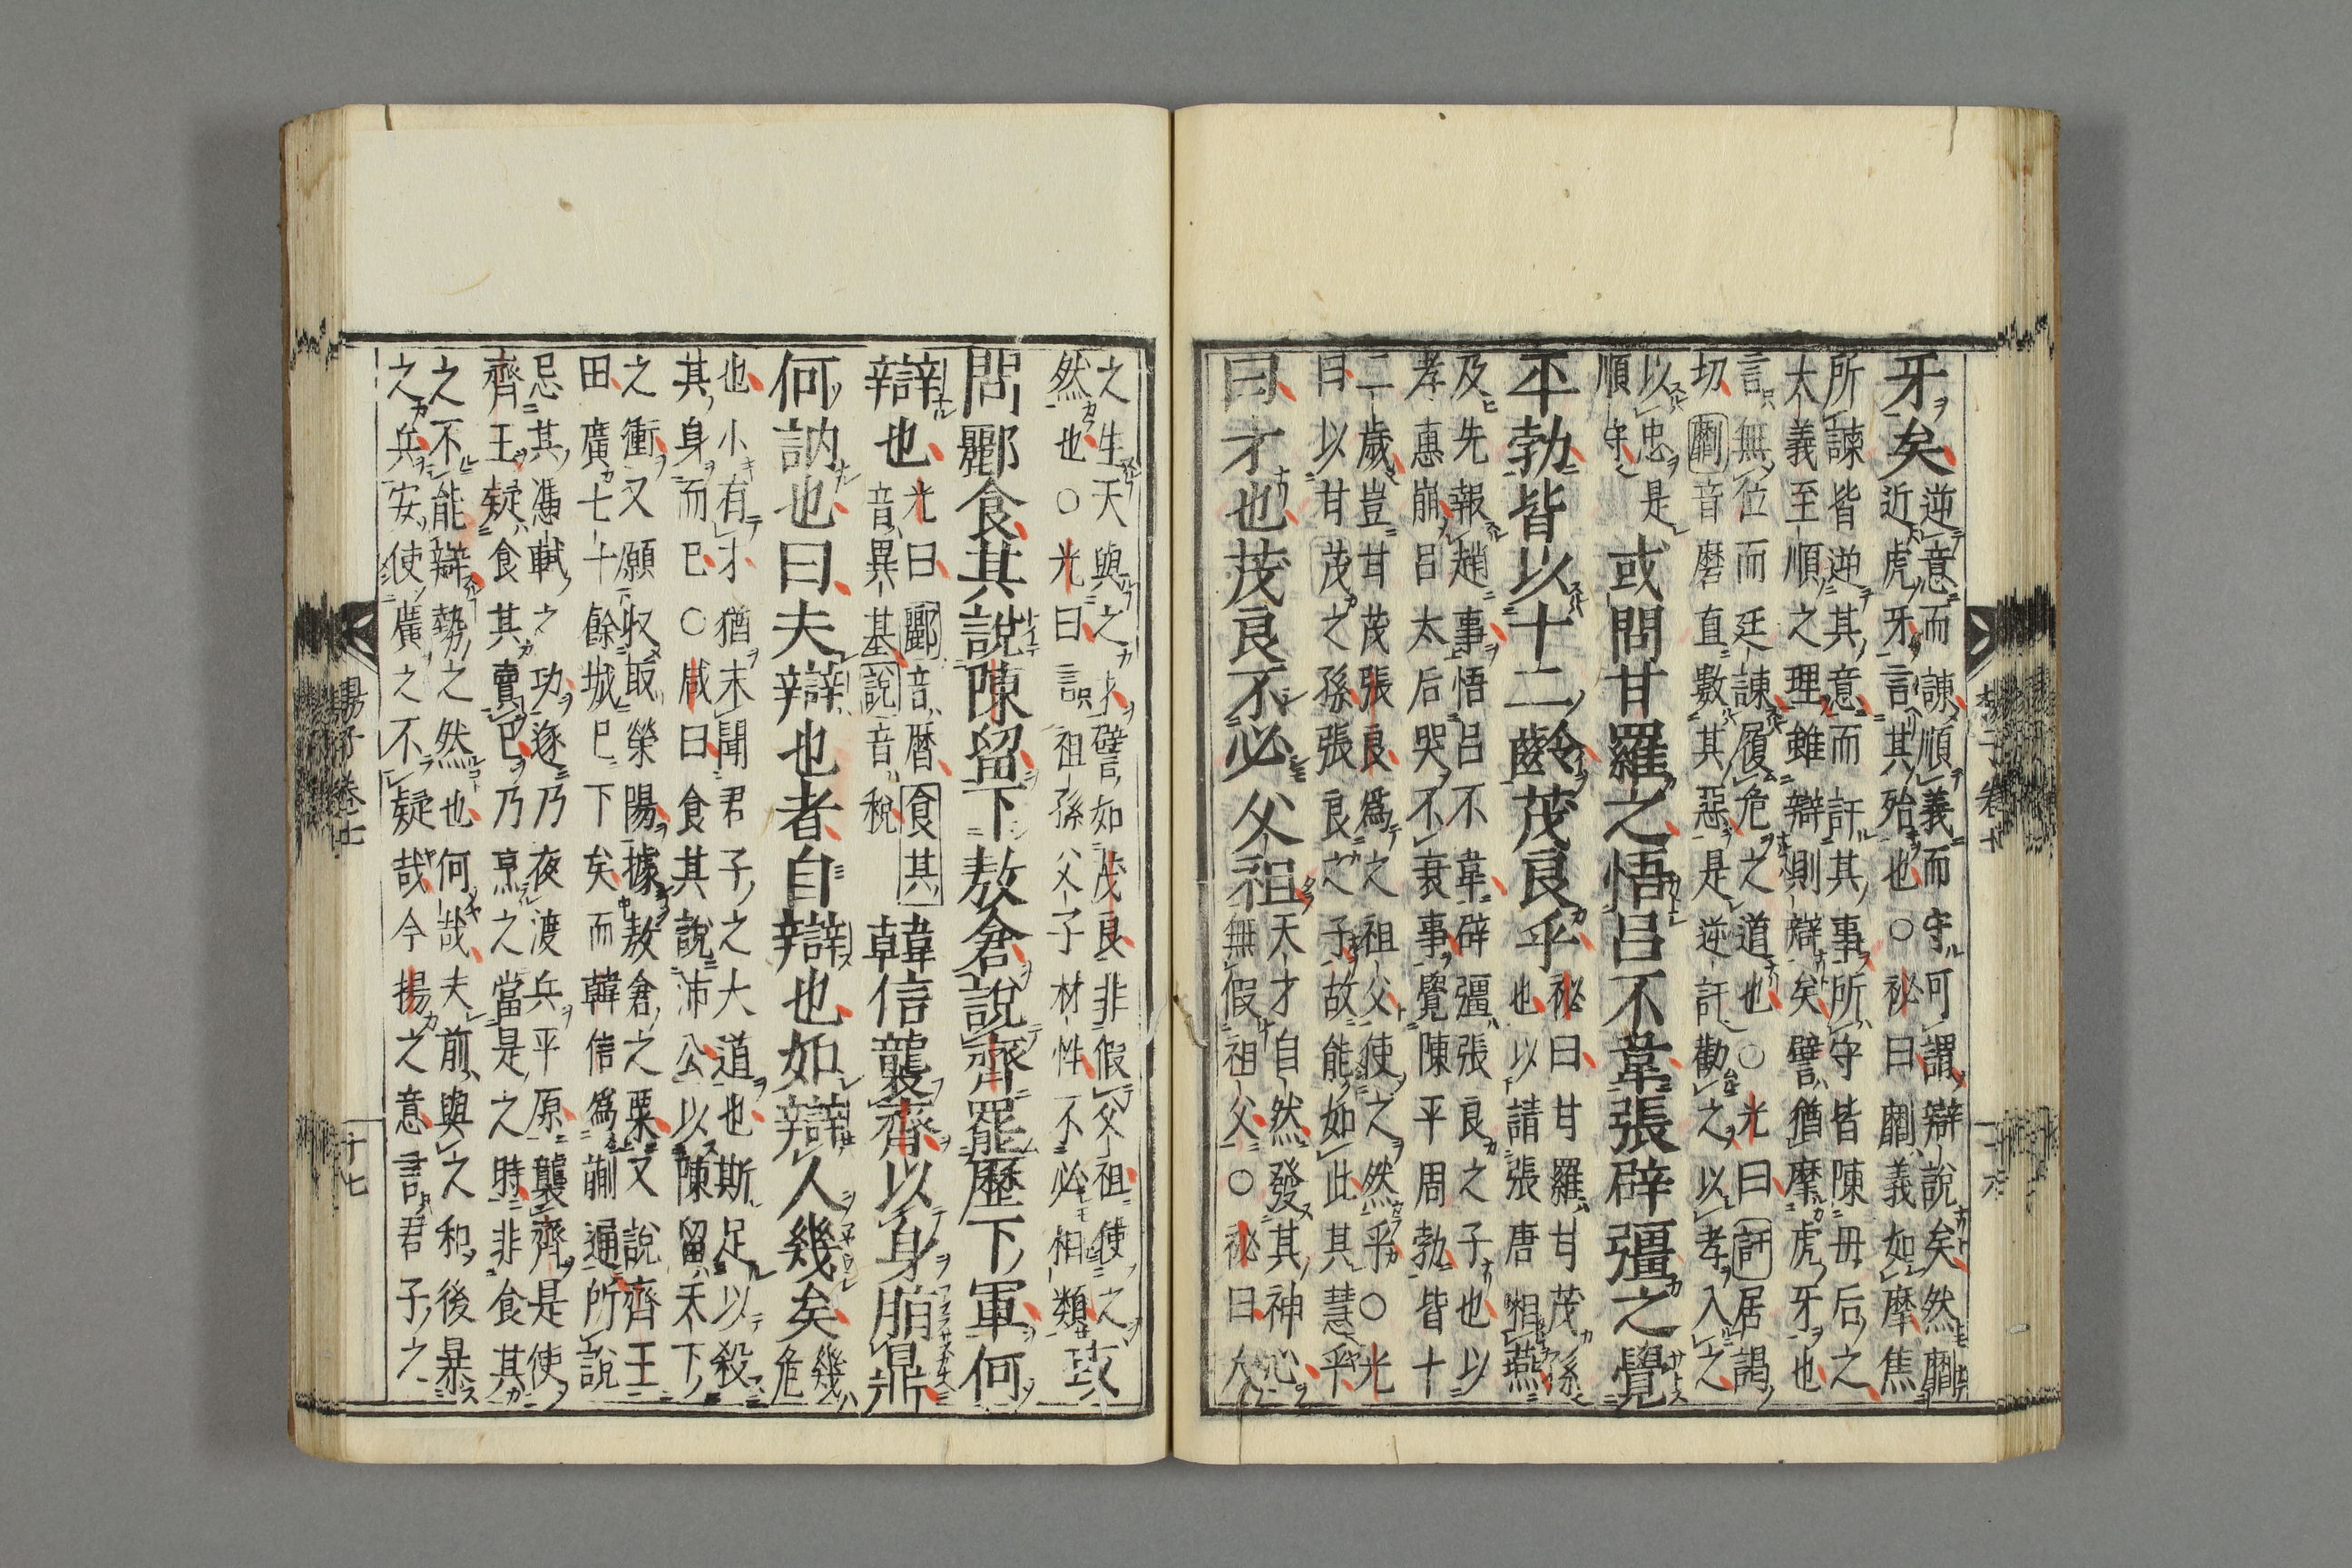 牙矣
逆意而諫順義而守可謂辯說矣然劘
近虎牙言其殆也○祕曰劘義如摩焦
所諫皆逆其意而訐其事所守皆陳毋后之
太義至順之理雖辯則辯矣譬猶摩虎牙也
言無位而廷諫履危之道也○光曰訐居謁
切劘音磨直數其惡是逆訐勸之以孝入之
以忠是
順守
或問甘羅之悟呂不韋張辟彊之覺
平勃皆以十二齡茂良乎
祕曰甘羅甘茂孫
也以請張唐相燕
及先報趙事悟呂不韋辟彊張良之子也以
孝惠崩呂太后哭不衰事覺陳平周勃皆十
二歲豈甘茂張良爲之祖父使之然乎○光
曰以甘茂之孫張良之子故能如此其慧乎
曰才也茂良不必父祖
天才自然發其神心
無假祖父○祕曰人
之生天與之才譬如茂良非假父祖使之故
然也○光曰言祖孫父子材性不必相類
問酈食其說陳留下敖倉說齊罷歷下軍何
辯也
光曰酈音曆食其
音異基說音稅
韓信襲齊以身脂鼎
何訥也曰夫辯也者自辯也如辯人幾矣
幾
危
也小有才猶未聞君子之大道也斯足以殺
其身而已○咸曰食其說沛公以陳留天下
之衝又願收取滎陽據敖倉之粟又說齊王
田廣七十餘城已下矣而韓信爲蒯通所說
忌其馮軾之功遂乃夜渡兵平原襲齊是使
齊王疑食其賣已乃烹之當是之時非食其
之不能辯勢之然也何哉夫前與之和後暴
之兵安使廣之不疑哉今揚之意言君子之
楊子卷七
十七